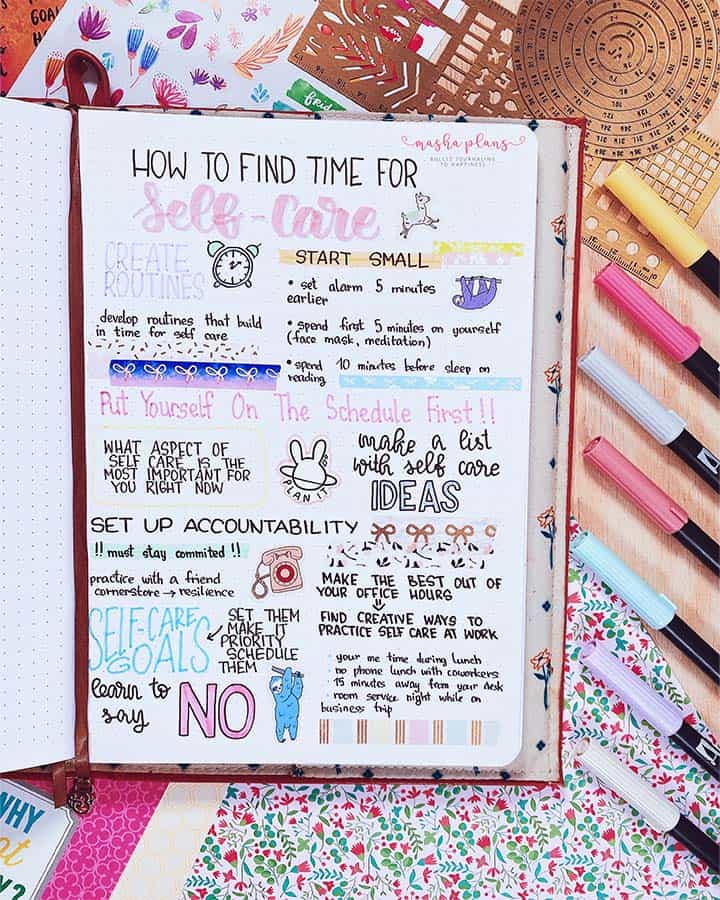 masha plans
BULLET JOURNALING
TO HAPPINESS
HOW TO FIND TIME FOR
Self-Care
CREATE
ROUTINES
develop routines that build
in time for self care
START SMALL
• set alarm 5 minutes
earlier
• spend first 5 minutes on yourself
(face mask, meditation)
• spend 10 minutes before sleep on
reading
Put Yourself On The Schedule First!!
WHAT ASPECT OF
SELF CARE IS THE
MOST IMPORTANT FOR
YOU RIGHT NOW
PLAN IT
make a list
with self care
IDEAS
SET UP ACCOUNTABILITY
!! must stay commited !!
practice with a friend
cornerstore → resilience
SELF-CARE
GOALS
SET THEM
MAKE IT
PRIORITY
SCHEDULE
THEM
learn to
say
NO
MAKE THE BEST OUT OF
YOUR OFFICE HOURS
FIND CREATIVE WAYS TO
PRACTICE SELF CARE AT WORK
• your me time during lunch
• no phone lunch with coworkers
• 15 minutes away from your desk
• room service night while on
business trip
WHY